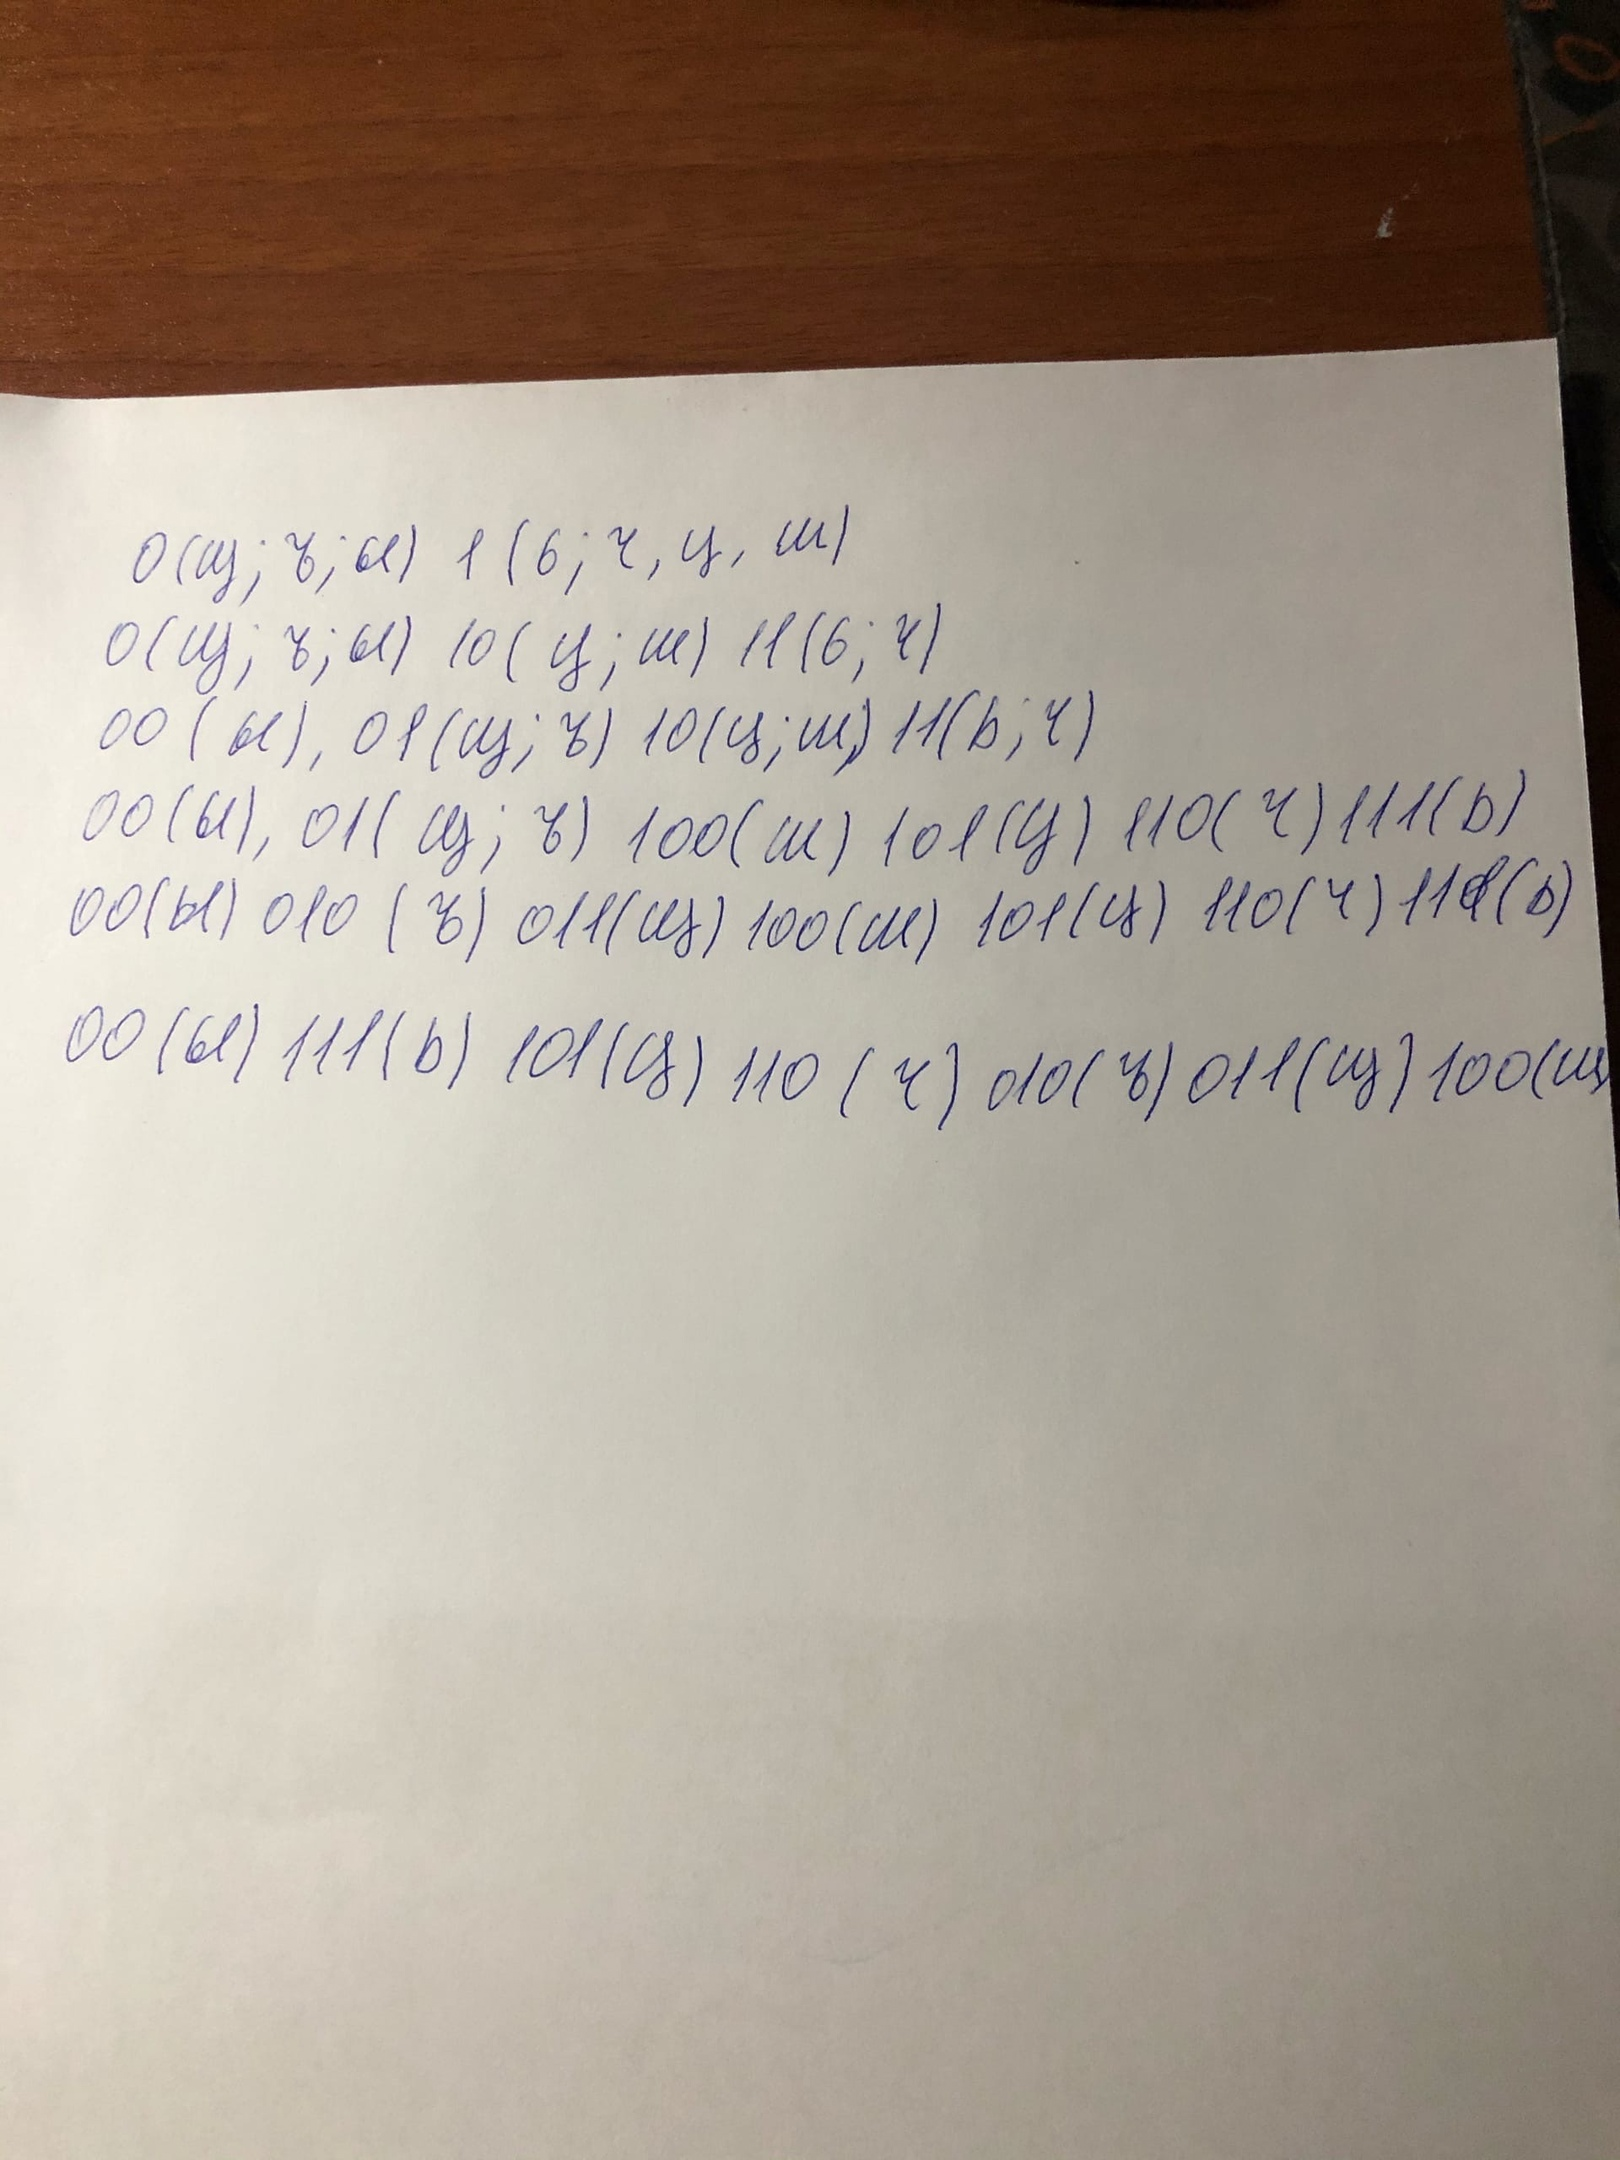 0(щ; ъ; ы) 1(ь; ч, ц, ш)
0(щ; ъ; ы) 10(ц; ш) 11(ь; ч)
00(ы), 01(щ; ъ) 10(ц; ш) 11(ь; ч)
00(ы), 01(щ; ъ) 100(ш) 101(ц) 110(ч) 111(ь)
00(ы) 010(ъ) 011(щ) 100(ш) 101(ц) 110(ч) 111(ь)
00(ы) 111(ь) 101(ц) 110(ч) 010(ъ) 011(щ) 100(ш)